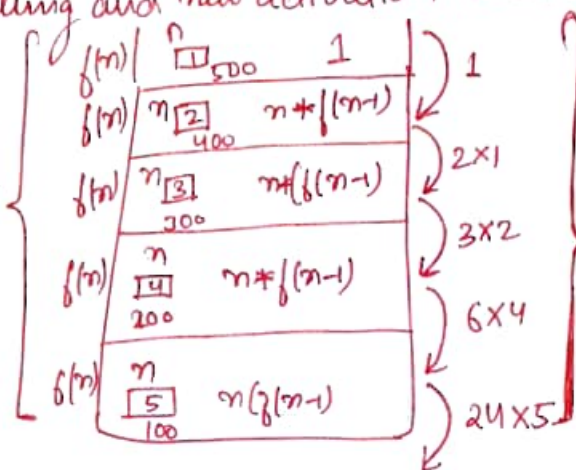 f(n) n 1 500 1 1
f(n) n 2 400 n*f(n-1) 2x1
f(n) n 3 300 n*(f(n-1) 3x2
f(n) n 4 200 n*f(n-1) 6x4
f(n) n 5 100 n(f(n-1) 24x5